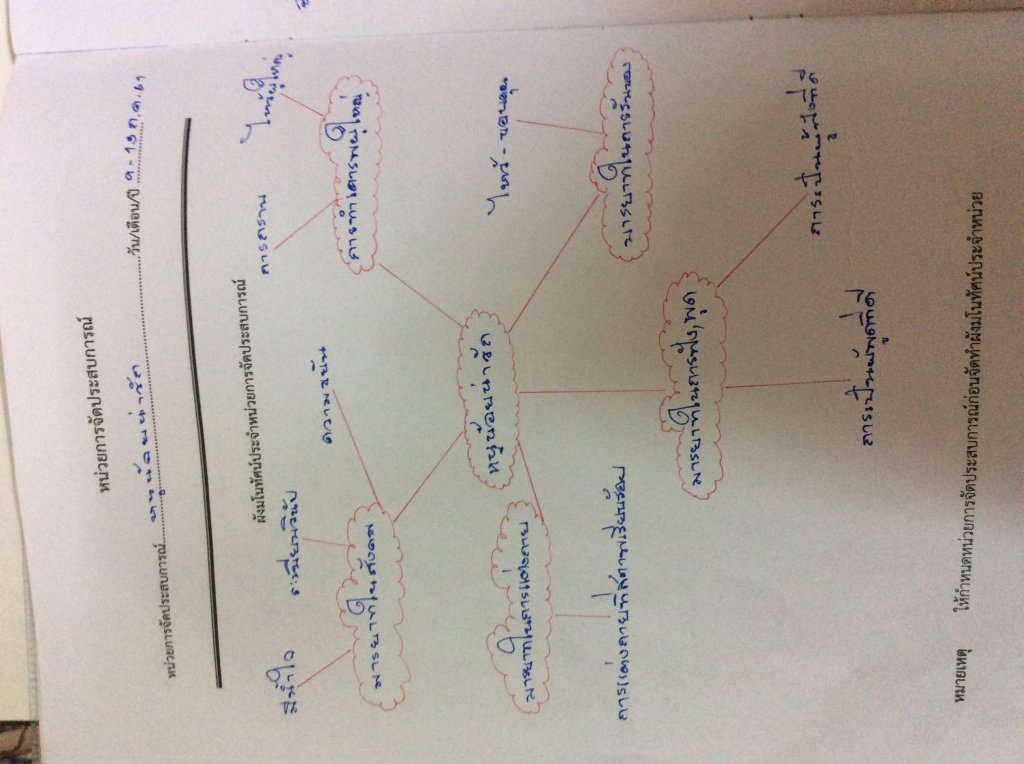 หน่วยการจัดประสบการณ์
หน่วยการจัดประสบการณ์ หนูน้อยน่ารัก วัน/เดือน/ปี ๑ - ๑๓ ก.ค. ๖๑
ผังมโนทัศน์ประจำหน่วยการจัดประสบการณ์
มีน้ำใจ
ระเบียบวินัย
ความขยัน
การกราบ
ไหว้ผู้ใหญ่
มารยาทในสังคม
การทำเคารพผู้ใหญ่
หนูน้อยน่ารัก
ไหว้ - ขอบคุณ
มารยาทในการแต่งกาย
มารยาทในการรับของ
การแต่งกายที่สุภาพเรียบร้อย
มารยาทในการฟัง, พูด
การเป็นผู้พูดที่ดี
การเป็นผู้ฟังที่ดี
หมายเหตุ ให้กำหนดหน่วยการจัดประสบการณ์ก่อนจัดทำผังมโนทัศน์ประจำหน่วย